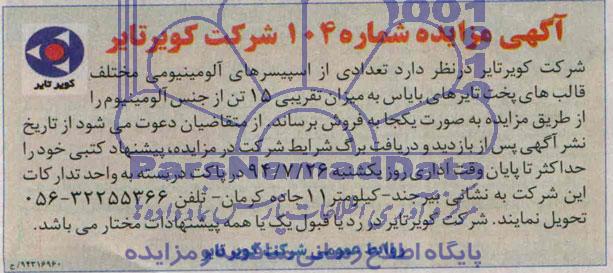 آگهی مزایده شماره ۱۰۴ شرکت کویرتایر
کویر تایر
شرکت کویرتایر درنظر دارد تعدادی از اسپیسرهای آلومینیومی مختلف
قالب های پخت تایرهای بایاس به میزان تقریبی ۱۵ تن از جنس آلومینیوم را
از طریق مزایده به صورت یکجا به فروش برساند. از متقاضیان دعوت می شود از تاریخ
نشر آگهی پس از بازدید و دریافت برگ شرایط شرکت در مزایده، پیشنهاد کتبی خود را
حداکثر تا پایان وقت اداری روز یکشنبه ۹۴/۷/۲۶ در پاکت دربسته به واحد تدارکات
این شرکت به نشانی بیرجند-کیلومتر ۱۱ جاده کرمان- تلفن ۳۲۲۵۵۳۶۶-۰۵۶
تحویل نمایند. شرکت کویرتایر در رد یا قبول یک یا همه پیشنهادات مختار می باشد.
روابط عمومی شرکت کویر تایر
۹۴۳۱۶۹۶۰/ح
ParsNamadData
پایگاه اطلاع رسانی مناقصه و مزایده